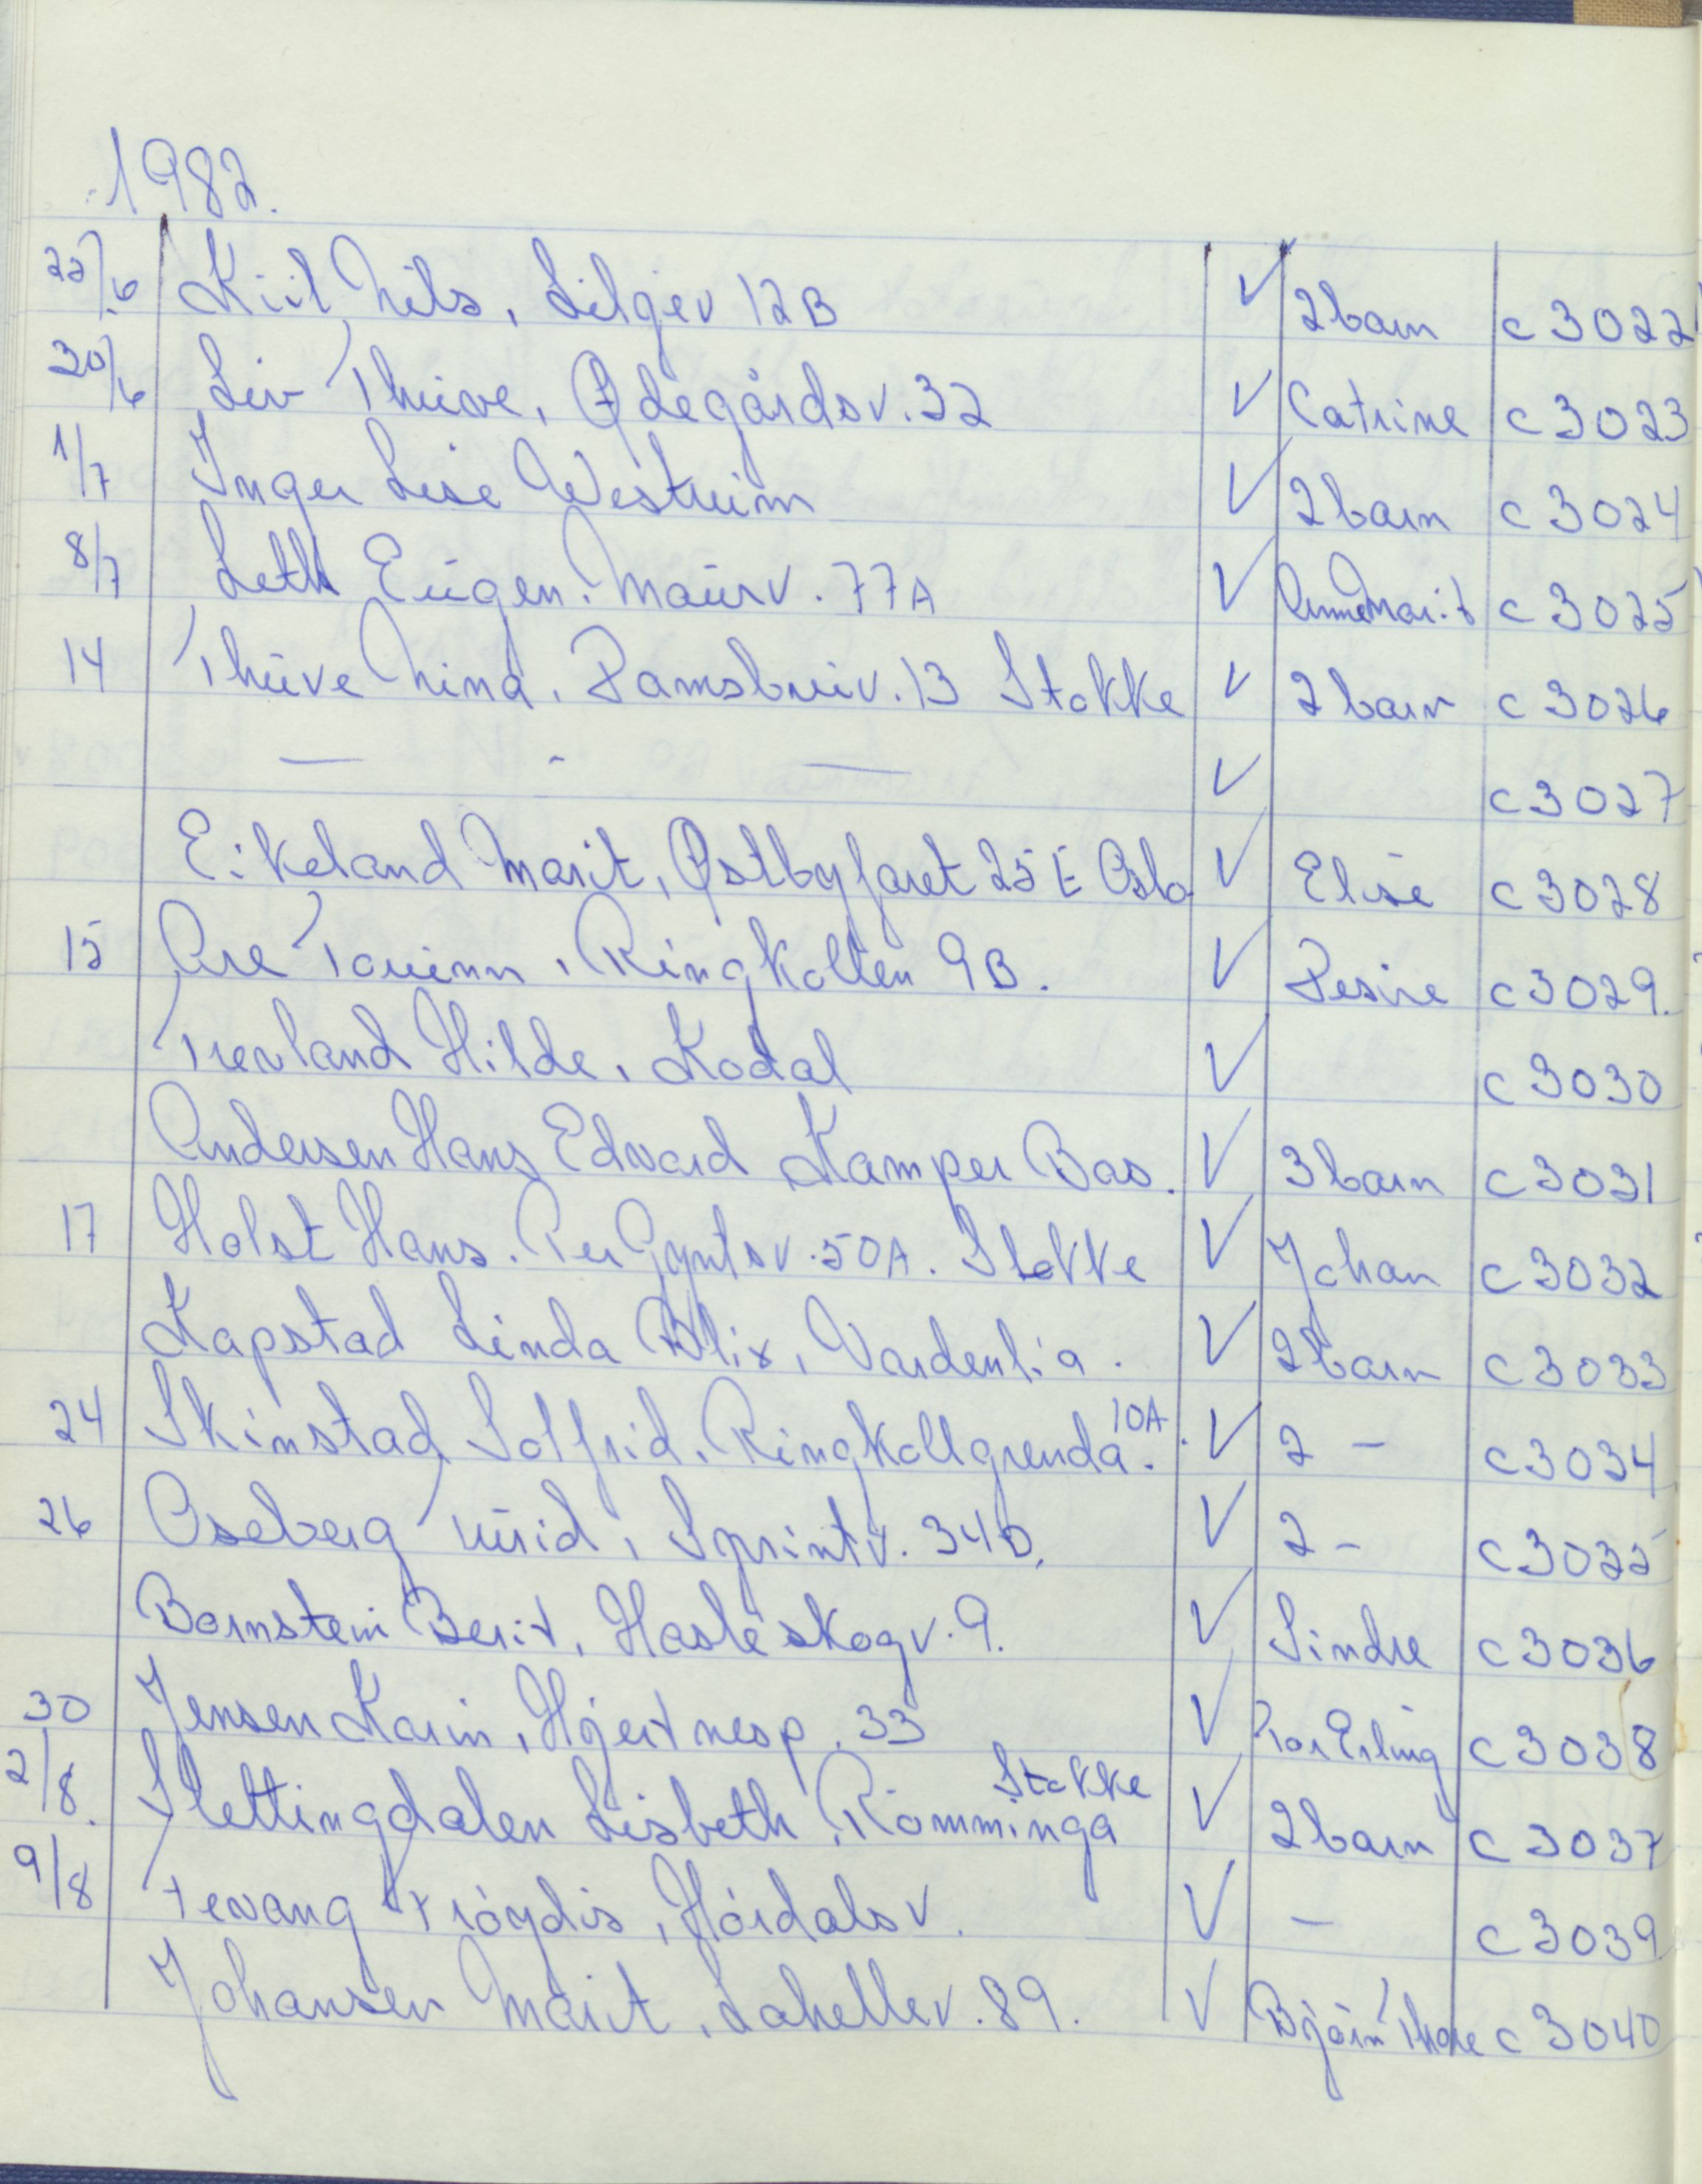 1982.
22/6 Kiil Nils, Liljev 12B V 2barn c3022
30/6 Liv Thuve, Ødegårdsv. 32 V Catrine c3023
1/7 Inger Lise Westrum V 2barn c3024
8/7 Leth Eugen. Maurv. 77A V Annemarit c3025
14 Thuve Nina, Ramsbuiv. 13 Stokke V 2barn c3026
— - — V c3027
Eikeland Marit, Østbyfaret 25E Oslo V Elise c3028
15 Are Tourinn, Ringkollen 9B. V Desire c3029.
Trevland Hilde, Kodal V c3030
Andersen Hans Edvard Kamper Bas. V 3barn c3031
17 Holst Hans. Per Gyntsv. 50A. Stokke V Johan c3032
Kapstad Linda Blix, Vardenlia. V 2barn c3033
24 Skinstad Solfrid, Ringkollgrenda 10A. V 2 - c3034
26 Oseberg Turid, Sprintv. 34D. V 2 - c3035
Bornstein Berit, Hasleskogv. 9. V Sindre c3036
30 Jensen Karin, Hjertnesp. 33 V Tor Erling c3038
2/8. Slettingdalen Lisbeth, Römminga Stokke V 2barn c3037
9/8 Tevang Fröydis, Hårdalsv. V - c3039
Johansen Marit, Lahellev. 89. V Björn Thore c3040